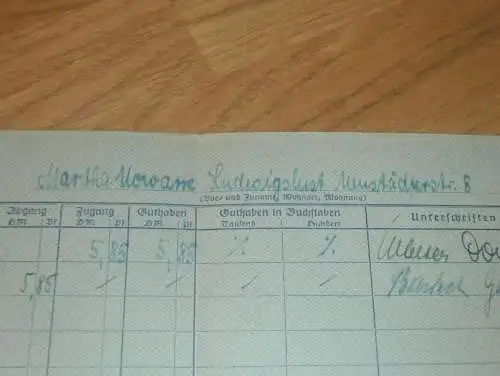 Martha Nowarre Ludwigslust Neustädterstr. 8
(Vor- und Zuname, Wohnort, Wohnung)
Abgang Zugang Guthaben Guthaben in Buchstaben Unterschriften
RM. Pf RM. Pf RM. Pf Tausend Hundert
5,85 5,85 ⁒ ⁒
5,85 / / / /